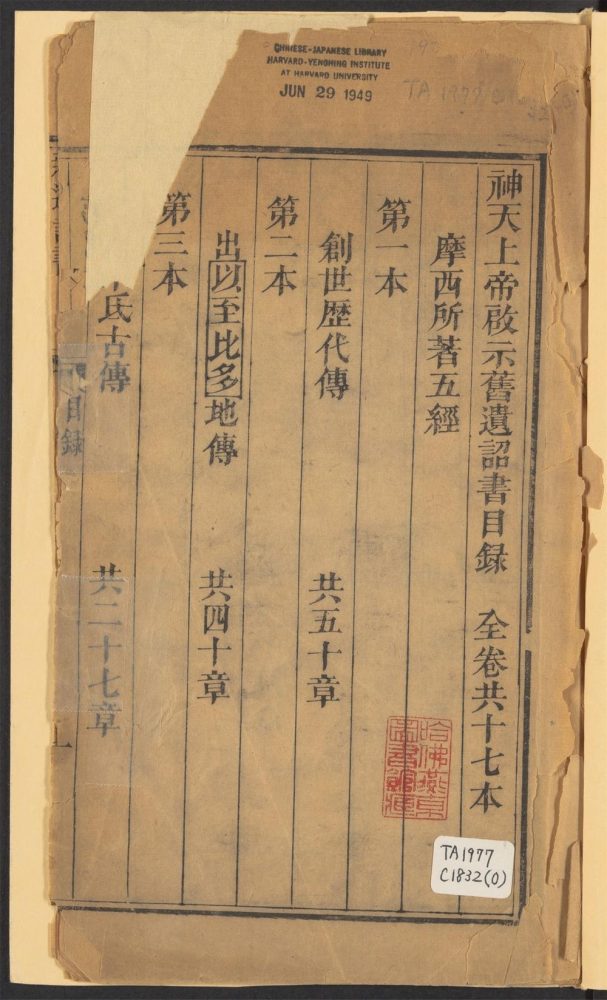 CHINESE-JAPANESE LIBRARY
HARVARD-YENCHING INSTITUTE
AT HARVARD UNIVERSITY
JUN 29 1949
TA 1977
神天上帝啟示舊遺詔書目錄 全卷共十七本
摩西所著五經
第一本
創世歷代傳 共五十章
第二本
出以至比多地傳 共四十章
第三本
氏古傳 共二十七章
目錄
哈佛燕京圖書館藏
TA1977
C1832(0)